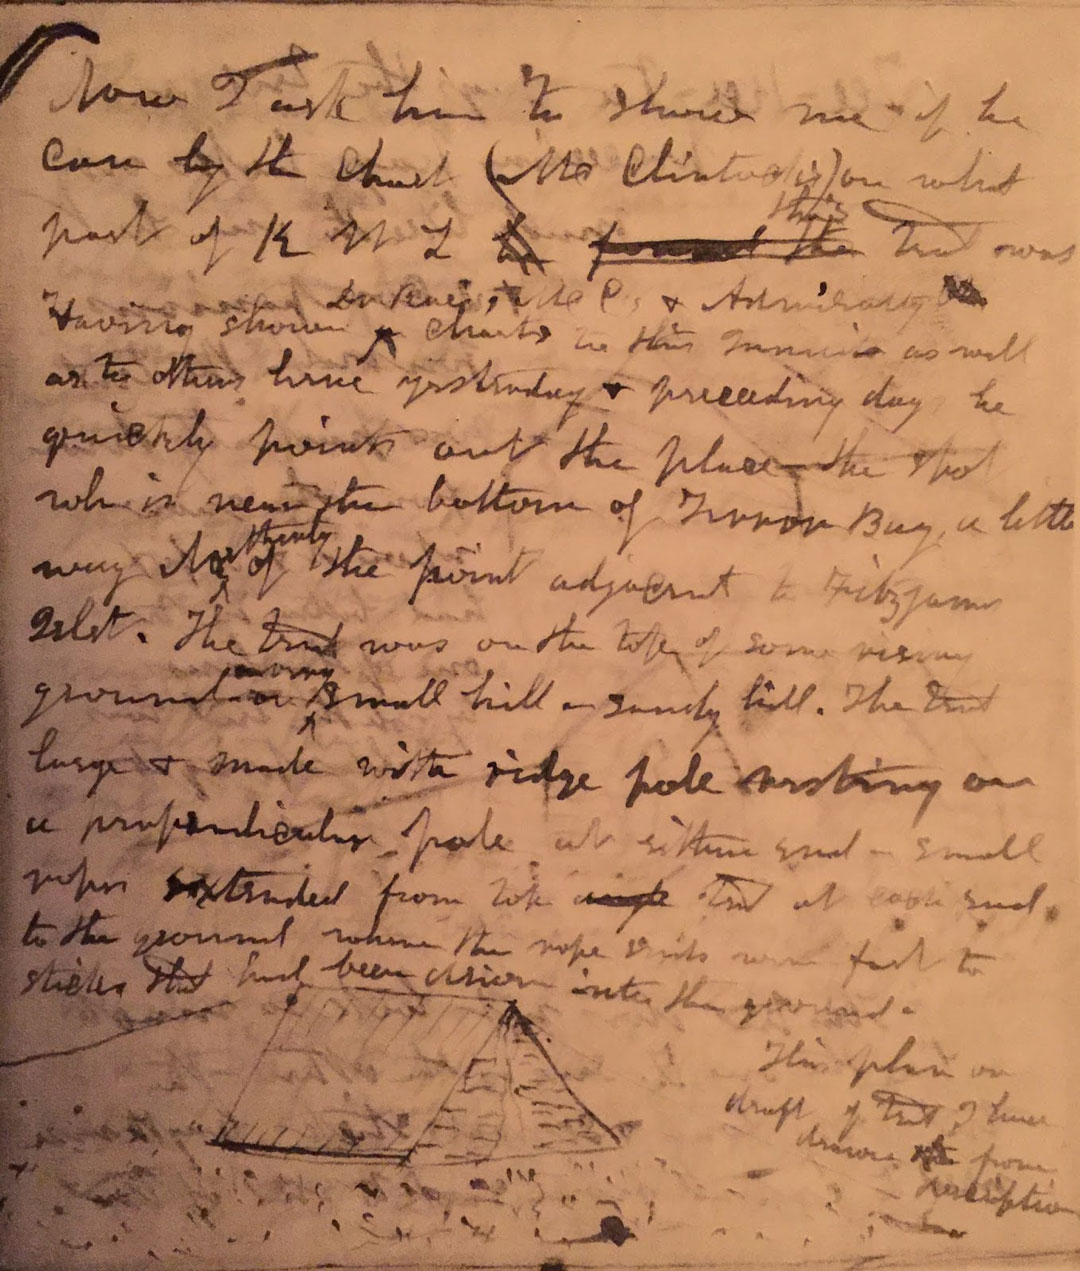 Now I ask him to show me if he
can by the chart (Mc Clintock's) on what
part of K W L this tent was
Dr Rae's, Mc C's & Admiralty
Having shown charts to this Innuit as well
as to others here yesterday & preceding day he
quickly points out the place - the spot
wh is near the bottom of Terror Bay, a little
way Northerly of the point adjacent to Fitzjames
Islet. The tent was on the top of some rising
ground or small hill - sandy hill. The tent
large & made with ridge pole resting on
a perpendicular pole at either end - small
ropes extended from top tent at each end
to the ground where the rope ends were fast to
sticks that had been driven into the ground.
This plan or
draft of tent I have
drawn from
description